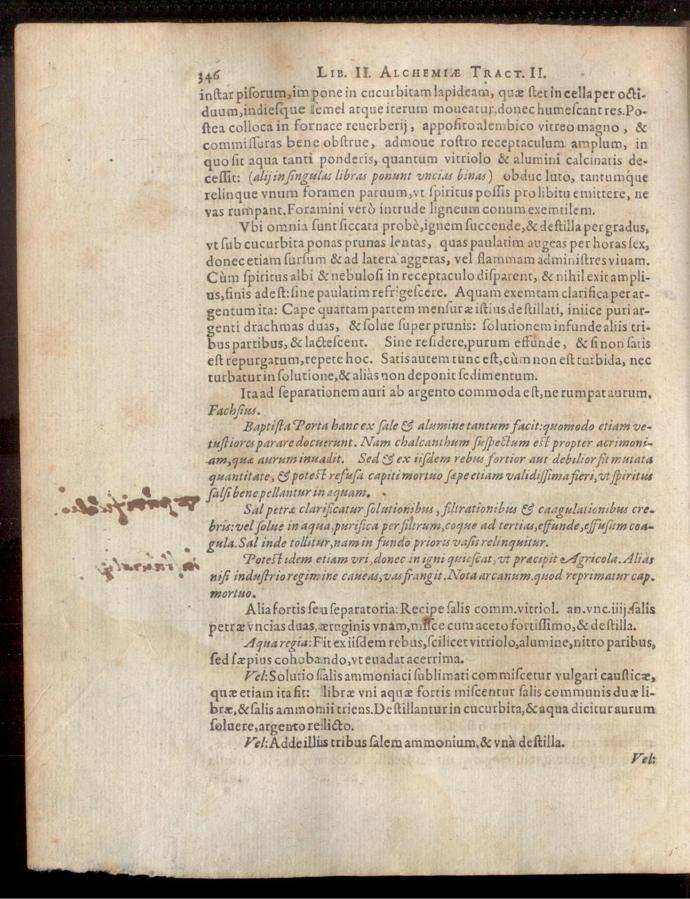 346 LIB. II. ALCHEMIÆ TRACT. II.
instar pisorum, impone in cucurbitam lapideam, quæ stet in cella per octi-
duum, indiesque semel atque iterum moueatur, donec humescant res. Po-
stea colloca in fornace reuerberij, apposito alembico vitreo magno, &
commissuras bene obstrue, admoue rostro receptaculum amplum, in
quo sit aqua tanti ponderis, quantum vitriolo & alumini calcinatis de-
cessit: (alij in singulas libras ponunt vncias binas) obduc luto, tantumque
relinque vnum foramen paruum, vt spiritus possis pro libitu emittere, ne
vas rumpant. Foramini verò intrude ligneum conum exemtilem.
Vbi omnia sunt siccata probè, ignem succende, & destilla per gradus,
vt sub cucurbita ponas prunas lentas, quas paulatim augeas per horas sex,
donec etiam sursum & ad latera aggeras, vel flammam administres viuam.
Cùm spiritus albi & nebulosi in receptaculo disparent, & nihil exit ampli-
us, finis adest: sine paulatim refrigescere. Aquam exemtam clarifica per ar-
gentum ita: Cape quartam partem mensuræ istius destillati, iniice puri ar-
genti drachmas duas, & solue super prunis: solutionem infunde aliis tri-
bus partibus, & lactescent. Sine residere, purum effunde, & si non satis
est repurgatum, repete hoc. Satis autem tunc est, cùm non est turbida, nec
turbatur in solutione, & aliàs non deponit sedimentum.
Ita ad separationem auri ab argento commoda est, ne rumpat aurum.
Fachsius.
Baptista Porta hanc ex sale & alumine tantum facit: quomodo etiam ve-
tustiores parare docuerunt. Nam chalcanthum suspectum est propter acrimoni-
am, quæ aurum inuadit. Sed & ex iisdem rebus fortior aut debilior fit mutata
quantitate, & potest refusa capiti mortuo sæpe etiam validissima fieri, vt spiritus
salsi bene pellantur in aquam.
Sal petræ clarificatur solutionibus, filtrationibus & coagulationibus cre-
bris: vel solue in aqua, purifica per filtrum, coque ad tertias, effunde, effusum coa-
gula. Sal inde tollitur, nam in fundo prioris vasis relinquitur.
Potest idem etiam vri, donec in igni quiescat, vt præcipit Agricola. Alias
nisi industrio regimine caueas, vas frangit. Nota arcanum. quod reprimatur cap.
mortuo.
Alia fortis seu separatoria: Recipe salis comm. vitriol. an. vnc. iiij. salis
petræ vncias duas, æruginis vnam, misce cum aceto fortissimo, & destilla.
Aqua regia: Fit ex iisdem rebus, scilicet vitriolo, alumine, nitro paribus,
sed sæpius cohobando, vt euadat acerrima.
Vel: Solutio salis ammoniaci sublimati commiscetur vulgari causticæ,
quæ etiam ita fit: libræ vni aquæ fortis miscentur salis communis duæ li-
bræ, & salis ammonii triens. Destillantur in cucurbita, & aqua dicitur aurum
soluere, argento relicto.
Vel: Adde illis tribus salem ammonium, & vnà destilla.
Vel: